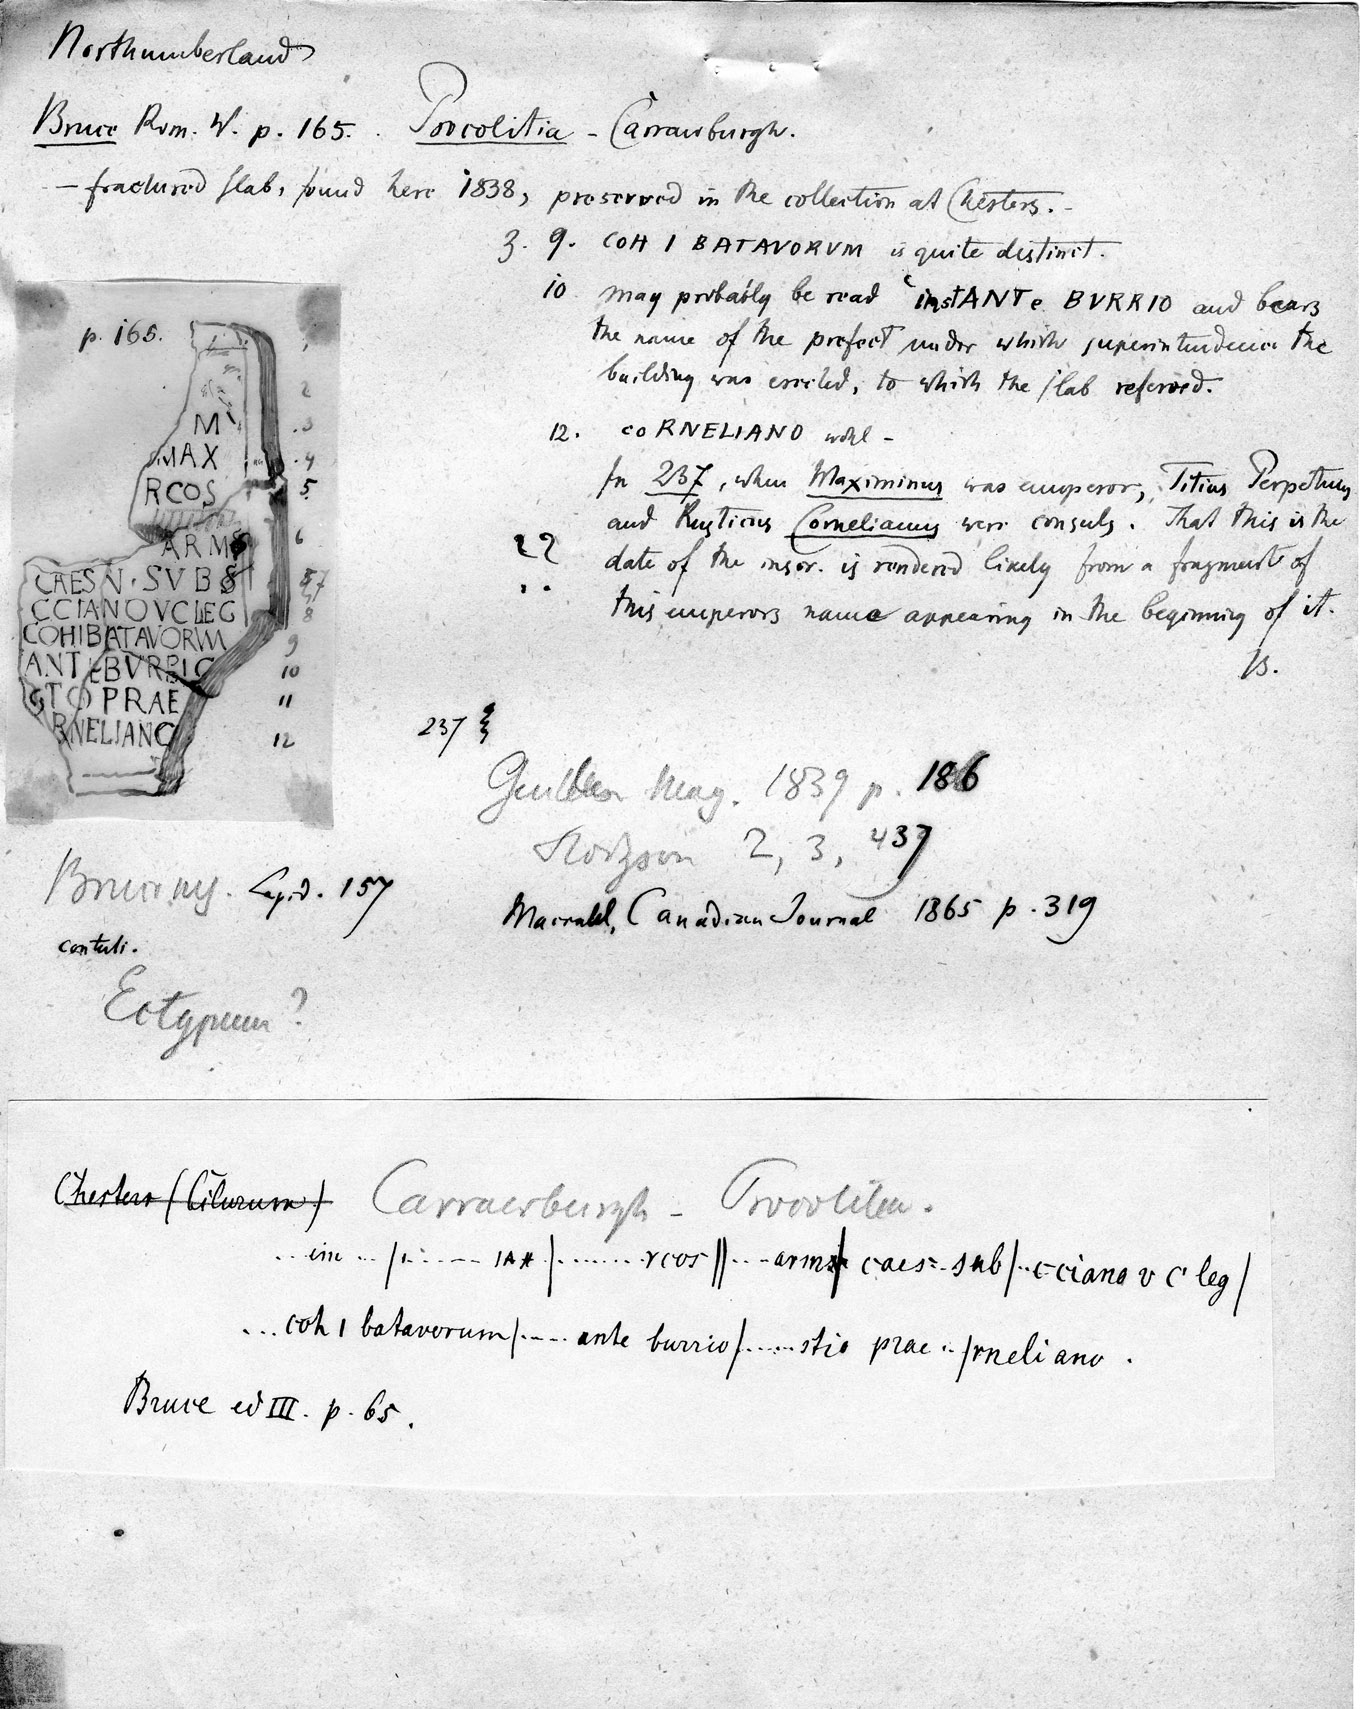 Northumberland
Bruce Rom. W. p. 165. Procolitia - Carrawburgh.
- fractured slab, found here 1838, preserved in the collection at Chesters. -
3. 9. COH I BATAVORVM is quite distinct.
10 may probably be read instANTe BVRRIO and bears
the name of the prefect under which superintendence the
building was erected, to which the slab referred.
12. coRNELIANO wohl -
In 237, when Maximinus was emperor, Titius Perpetuus
and Rusticus Cornelianus were consuls. That this is the
?? date of the inscr. is rendered likely from a fragment of
this emperors name appearing in the beginning of it.
B.
p. 165.
1
2
M 3
MAX 4
RCOS 5
ARMS 6
CAES N · SVB 7
CCIANO VC LEG 8
COH I BATAVORVM 9
ANTE BVRRIO 10
STO PRAE 11
RNELIANO 12
237
Mag. 1839 p. 186
2, 3, 437
Bruce Lapid. 157
Canadian Journal 1865 p. 319
contuli.
Ectypum?
Chesters (Cilurum) Carrawburgh - Procolitia.
...im ... /......... /........ rcos //... arms / caes.. sub /.. cciano v c leg /
... coh I batavorum /.... ante burrio /...... sto prae .. / rneliano .
Bruce ed III. p. 65.